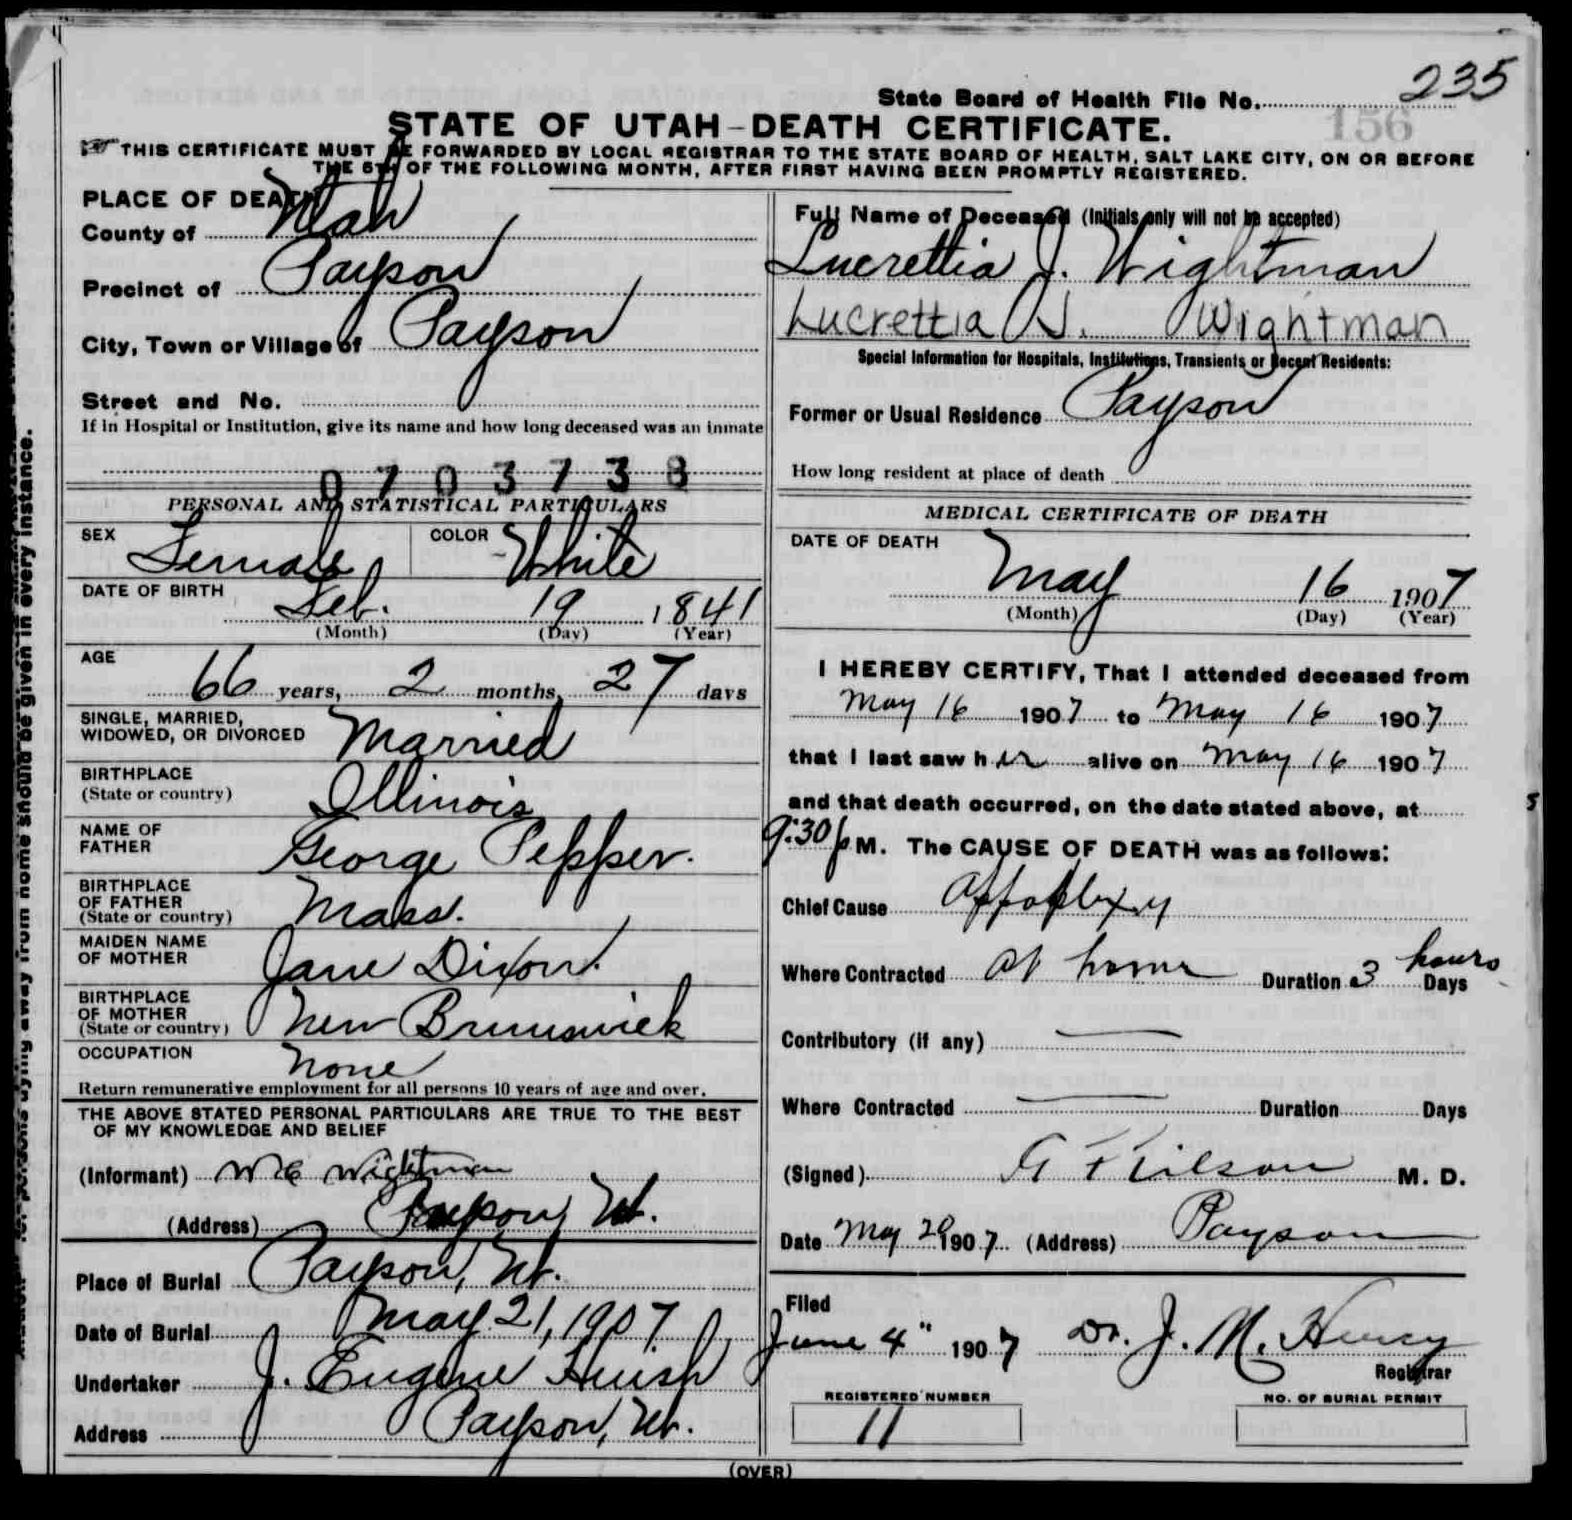 235
State Board of Health File No.
156
STATE OF UTAH-DEATH CERTIFICATE.
THIS CERTIFICATE MUST BE FORWARDED BY LOCAL REGISTRAR TO THE STATE BOARD OF HEALTH, SALT LAKE CITY, ON OR BEFORE
THE 5TH OF THE FOLLOWING MONTH, AFTER FIRST HAVING BEEN PROMPTLY REGISTERED.
PLACE OF DEATH
County of Utah
Precinct of Payson
City, Town or Village of Payson
Street and No.
If in Hospital or Institution, give its name and how long deceased was an inmate
0703738
PERSONAL AND STATISTICAL PARTICULARS
SEX Female COLOR White
DATE OF BIRTH Feb. 19 1841
(Month) (Day) (Year)
AGE 66 years, 2 months, 27 days
SINGLE, MARRIED,
WIDOWED, OR DIVORCED Married
BIRTHPLACE
(State or country) Illinois
NAME OF
FATHER George Pepper.
BIRTHPLACE
OF FATHER
(State or country) Mass.
MAIDEN NAME
OF MOTHER Jane Dixon.
BIRTHPLACE
OF MOTHER
(State or country) New Brunswick
OCCUPATION None
Return remunerative employment for all persons 10 years of age and over.
THE ABOVE STATED PERSONAL PARTICULARS ARE TRUE TO THE BEST
OF MY KNOWLEDGE AND BELIEF
(Informant) Wm C Wightman
(Address) Payson, Ut.
Place of Burial Payson, Ut.
Date of Burial May 21, 1907.
Undertaker J. Eugene Huish
Address Payson, Ut.
Full Name of Deceased (Initials only will not be accepted)
Lucrettia J. Wightman
Lucrettia J. Wightman
Special Information for Hospitals, Institutions, Transients or Recent Residents:
Former or Usual Residence Payson
How long resident at place of death
MEDICAL CERTIFICATE OF DEATH
DATE OF DEATH
May 16 1907
(Month) (Day) (Year)
I HEREBY CERTIFY, That I attended deceased from
May 16 1907 to May 16 1907
that I last saw her alive on May 16 1907
and that death occurred, on the date stated above, at
9:30 p M. The CAUSE OF DEATH was as follows:
Chief Cause Appoplexy
Where Contracted at home Duration 3 hours Days
Contributory (if any)
Where Contracted Duration Days
(Signed) M. D.
Date May 20 1907 (Address) Payson
Filed
June 4" 1907 Dr. J. M.
Registrar
REGISTERED NUMBER
11
NO. OF BURIAL PERMIT
(OVER)
for persons dying away from home should be given in every instance.